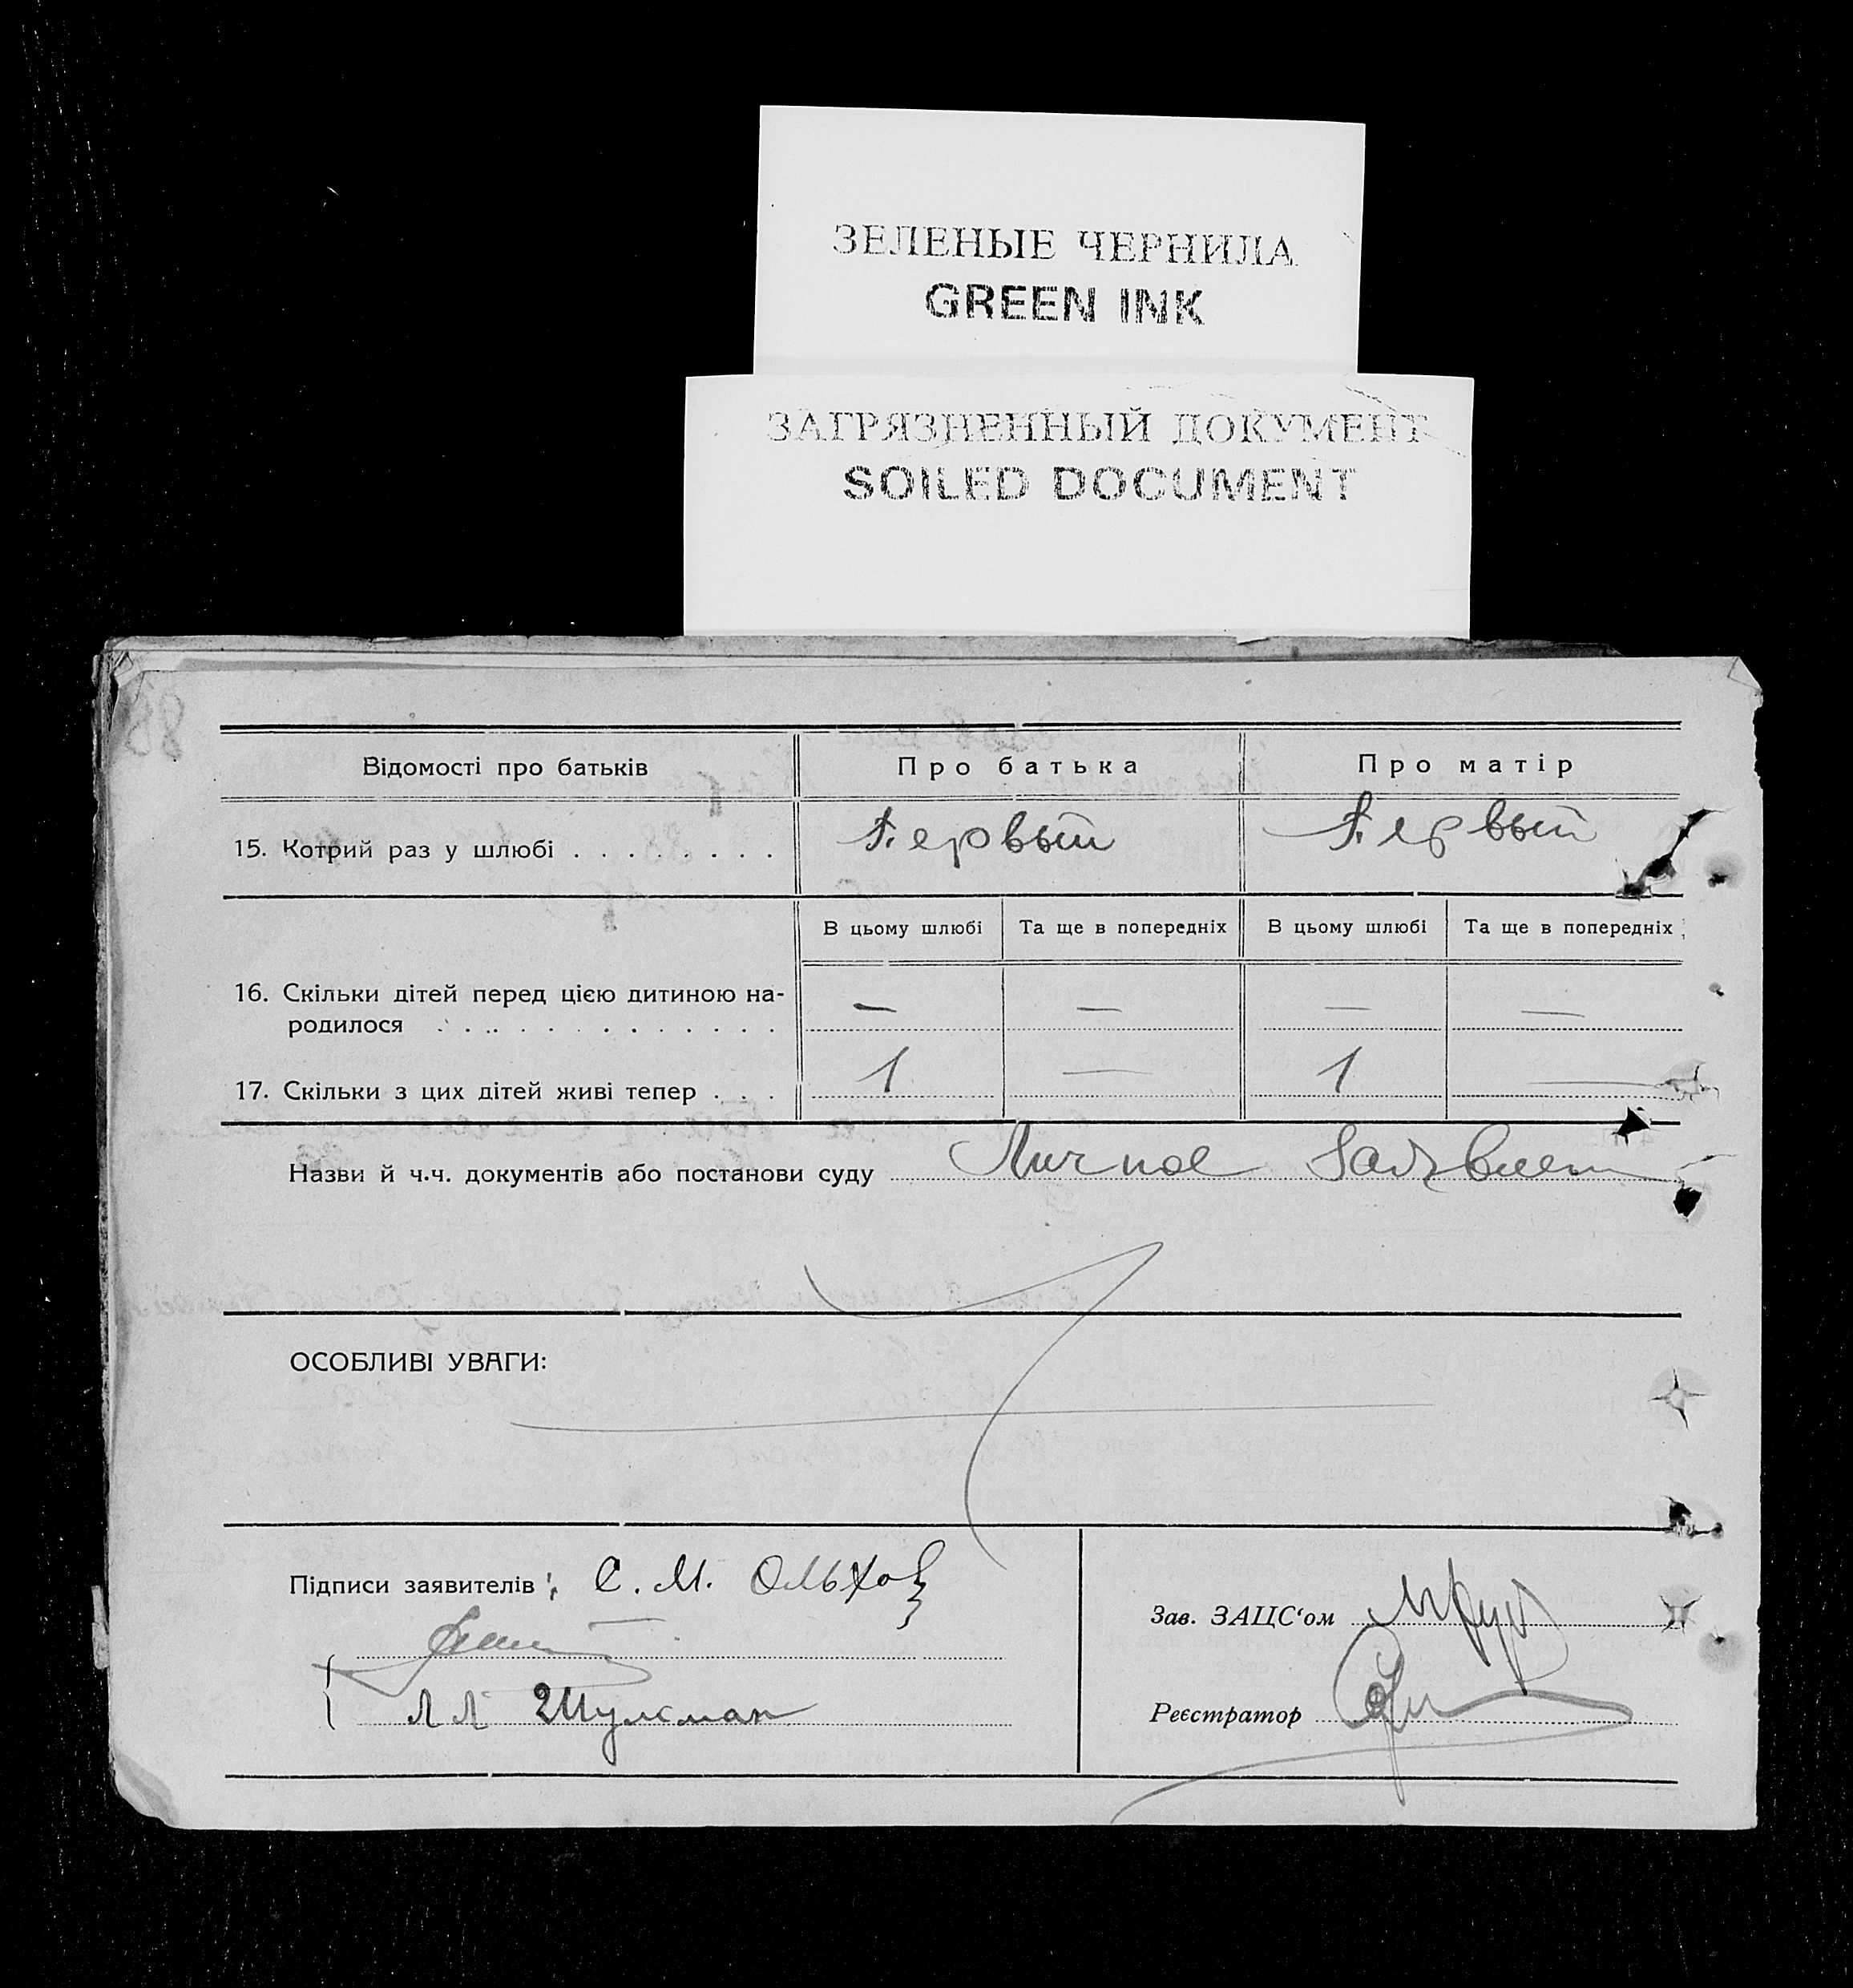 ЗЕЛЕНЫЕ ЧЕРНИЛА
GREEN INK
ЗАГРЯЗНЕННЫЙ ДОКУМЕНТ
SOILED DOCUMENT
Відомості про батьків Про батька Про матір
15. Котрий раз у шлюбі . . . . . . . . Первый Первый
В цьому шлюбі Та ще в попередніх В цьому шлюбі Та ще в попередніх
16. Скільки дітей перед цією дитиною на- — — — —
родилося
17. Скільки з цих дітей живі тепер . . . 1 — 1 —
Назви й ч.ч. документів або постанови суду Личное
ОСОБЛИВІ УВАГИ:
Підписи заявителів: С. М. Ольхов
Зав. ЗАЦС‘ом
Л Л Шульман
Реєстратор